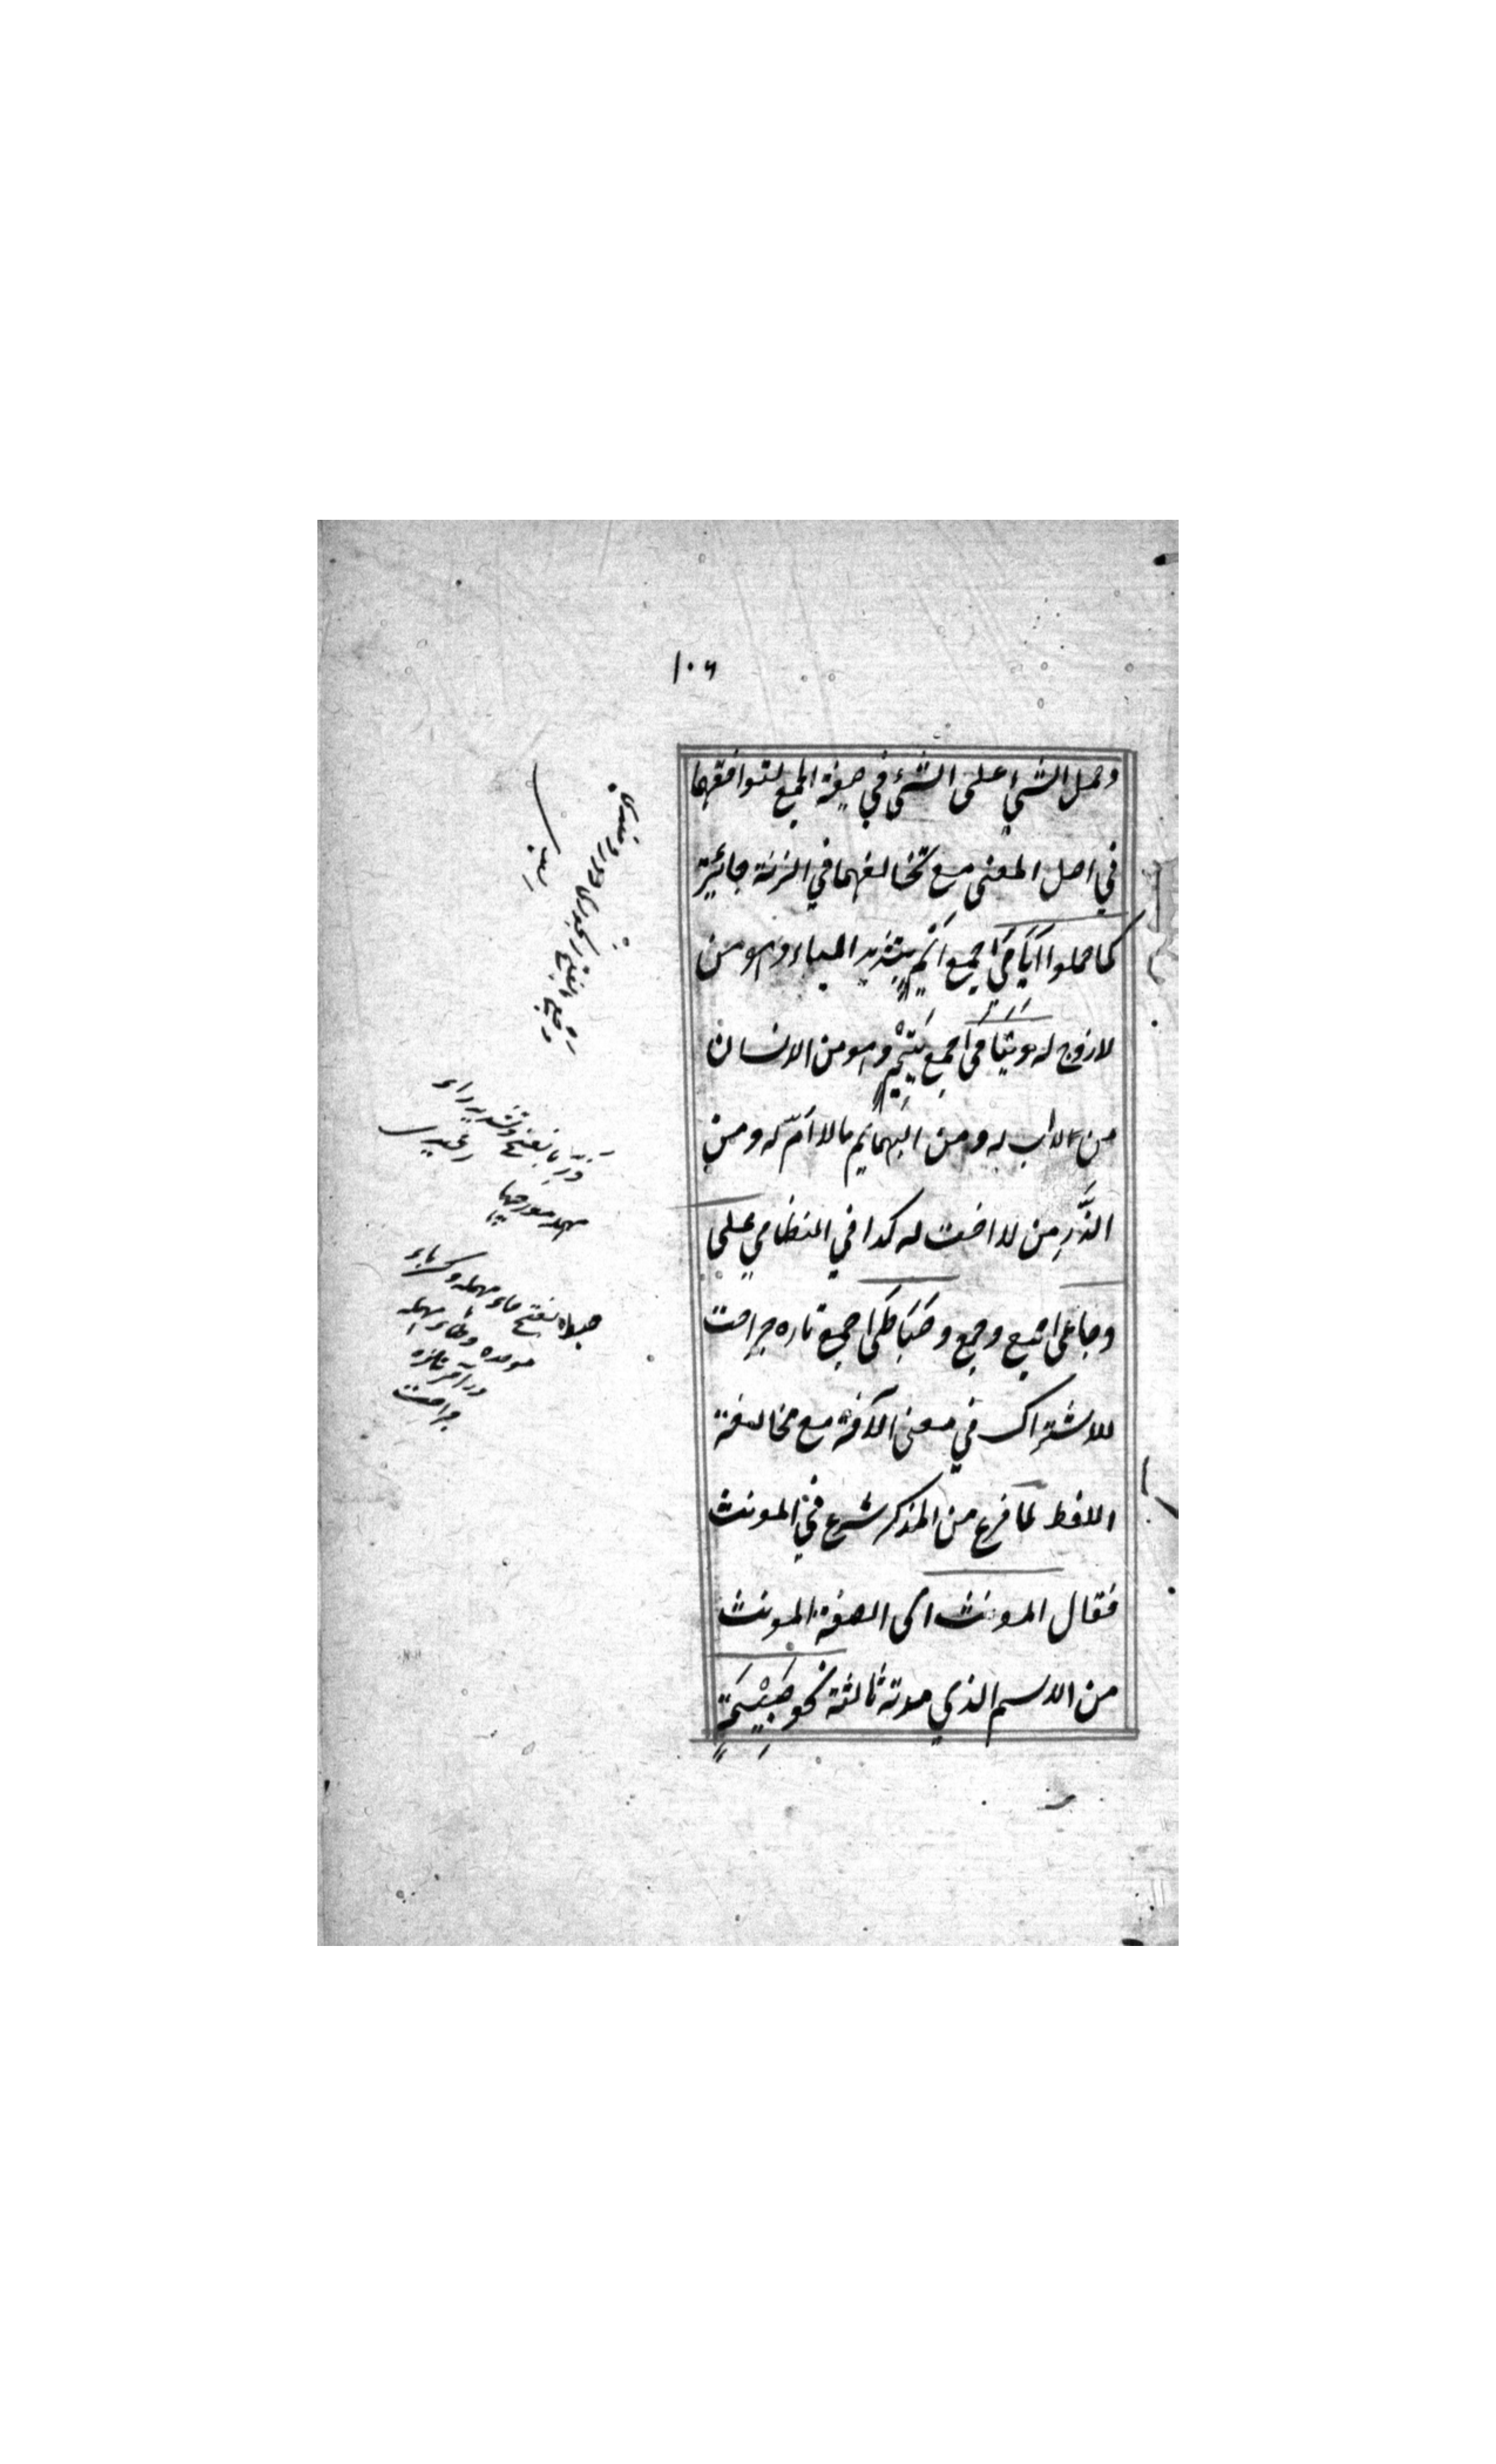 ١٠٦
وحمل الشيء على الشئ في صيغة الجمع لتوافقهما
في اصل المعنى مع تخالفهما في الزنة جائزة
كما حملوا اَيَامَى جمع اَيِّمٍ بتشديد الياء وهو من
لا زوج له ويَتَامَى جمع يَتِيْمٍ وهو من الانسان
من لا اب له ومن البهائم ما لا اُمّ له ومن
الدُّرِ من لا اخت له كذا في النظامي على
وجاعى جمع وجع وحَبَاطَى جمع تاره جراحت
للاشتراك في معنى الآفة مع تخالفة
اللفظ لما فرغ من المذكر شرع في المونث
فقال المونث اى الصفة المونث
من الاسم الذي مدته ثالثة نحو صَبِيْحَةٍ
ذرّ بالفتح وتشديد راء
حبط بفتح حاء مهمله وكسر باء
موحده وطاء مهمله
در آخر تازه
جراحت